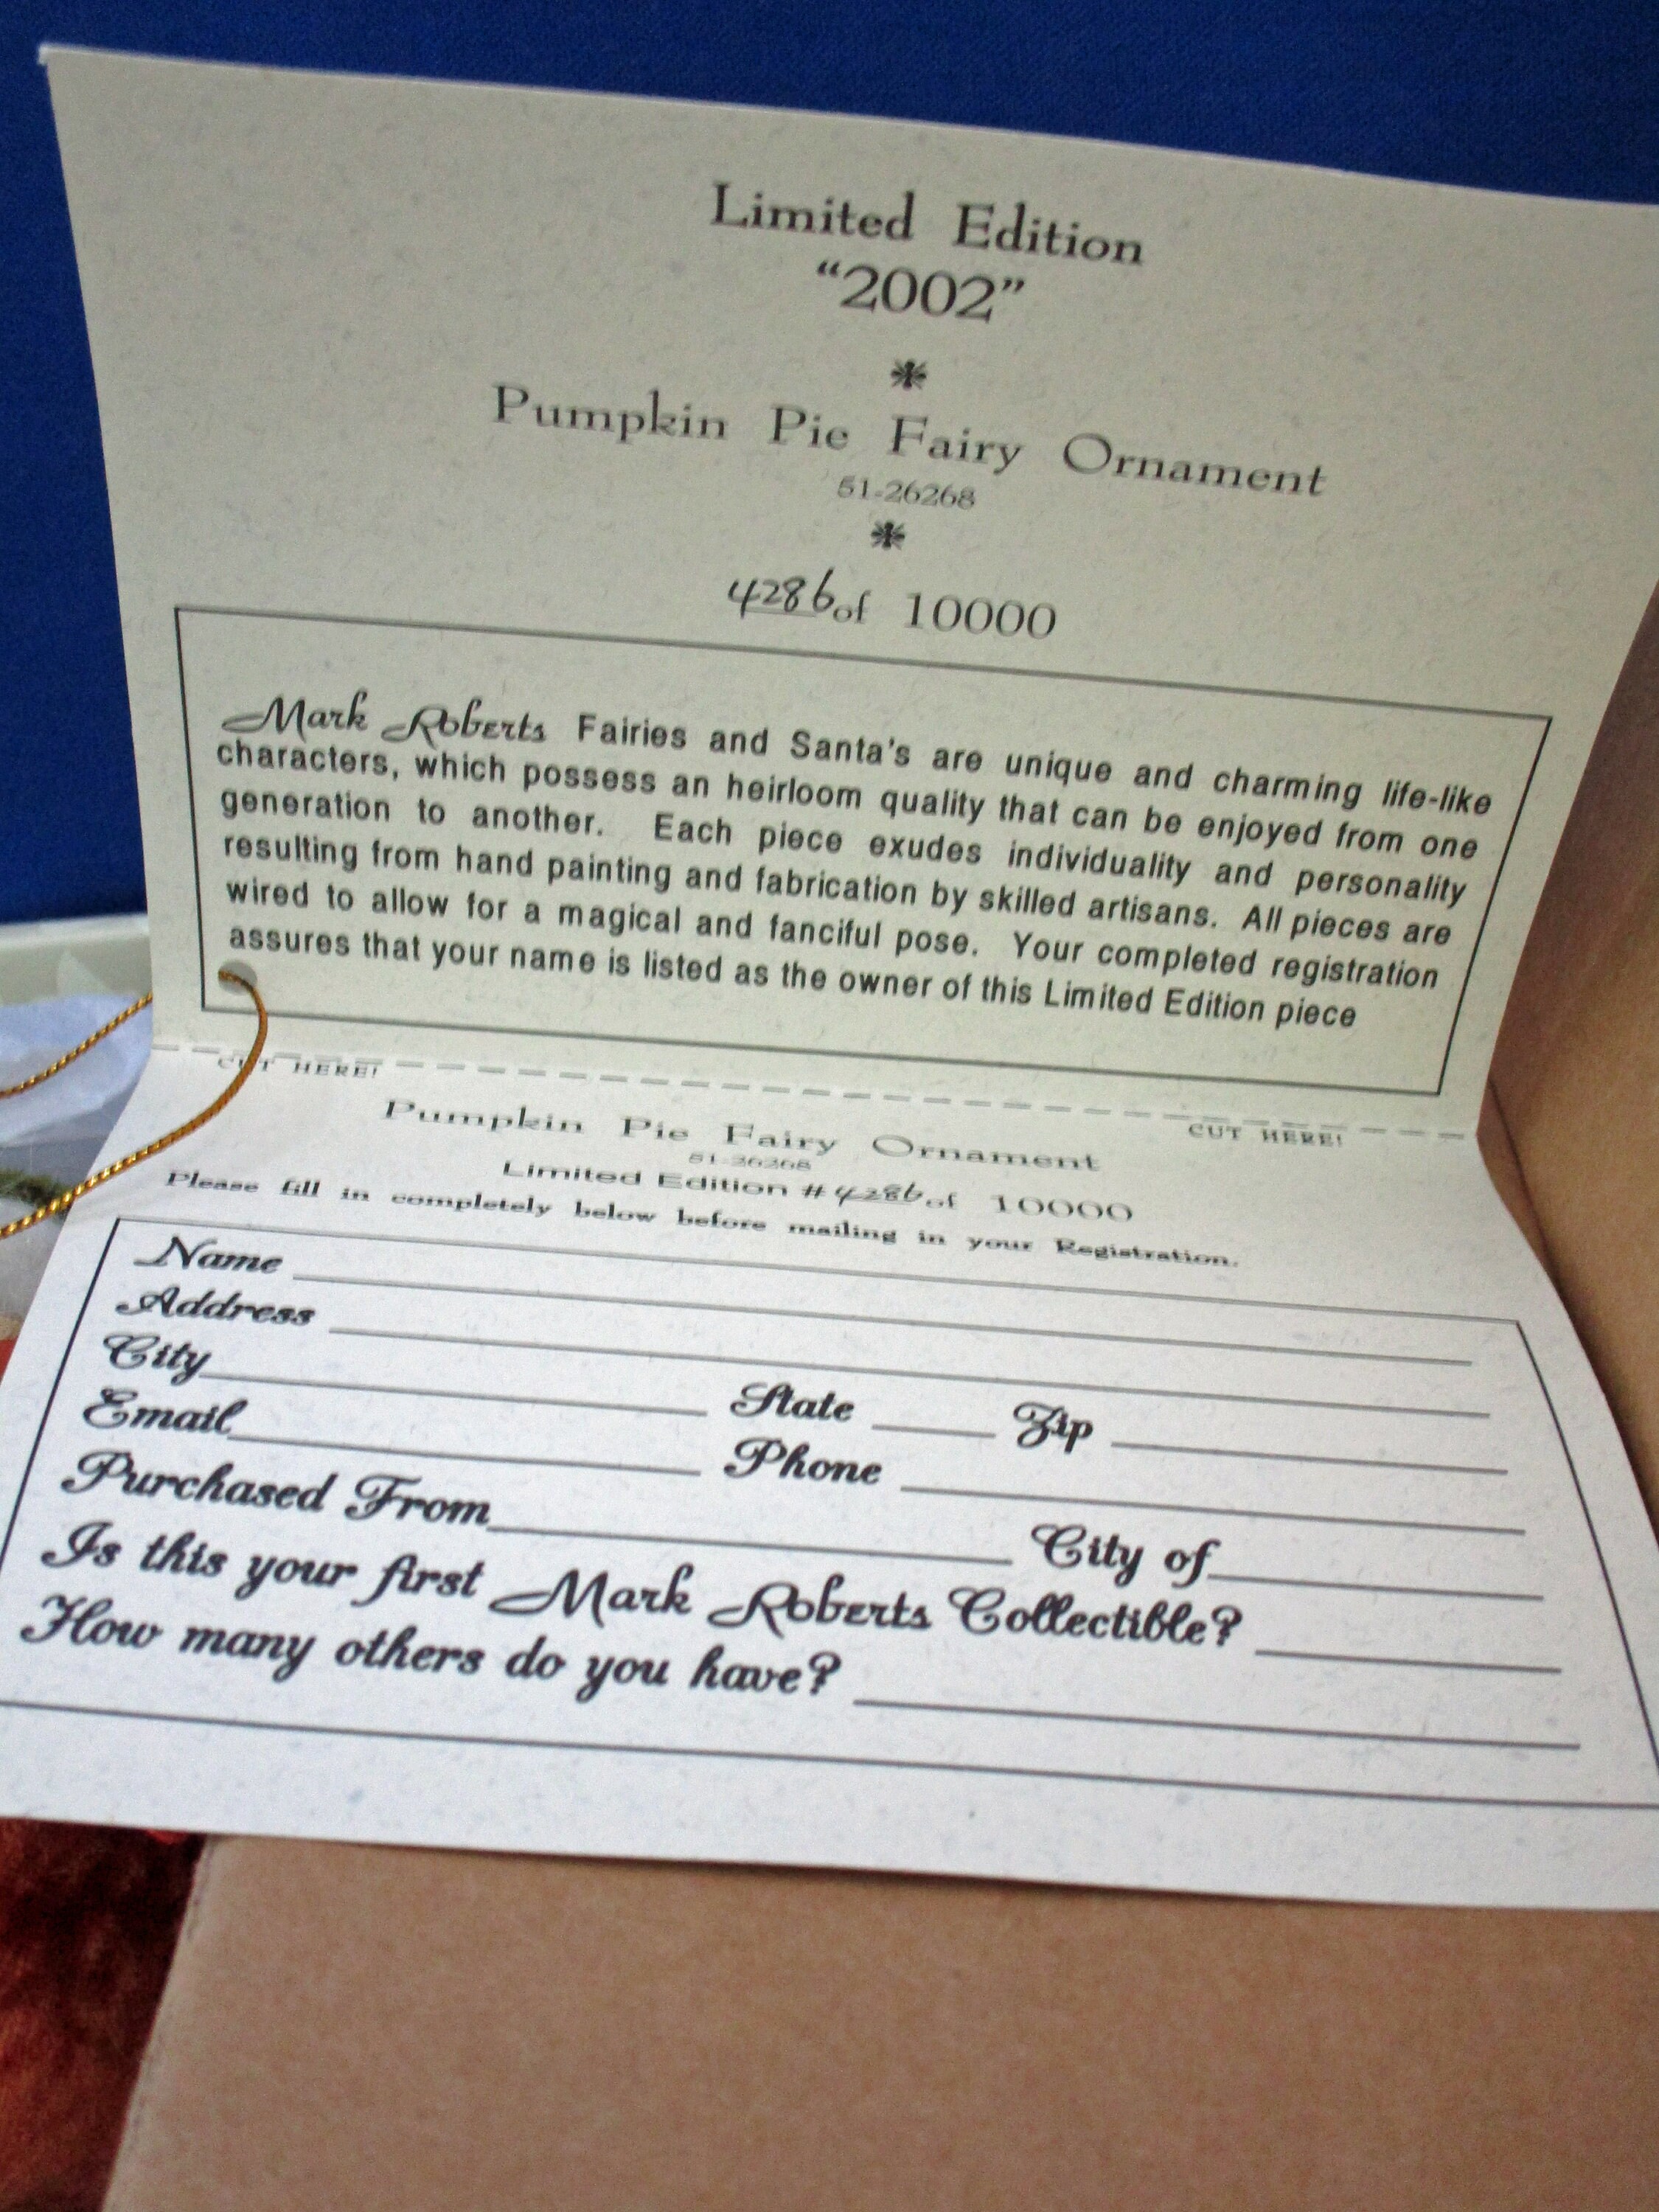 Limited Edition
“2002”
Pumpkin Pie Fairy Ornament
51-26268
4286 of 10000
Mark Roberts Fairies and Santa's are unique and charming life-like
characters, which possess an heirloom quality that can be enjoyed from one
generation to another. Each piece exudes individuality and personality
resulting from hand painting and fabrication by skilled artisans. All pieces are
wired to allow for a magical and fanciful pose. Your completed registration
assures that your name is listed as the owner of this Limited Edition piece
CUT HERE! CUT HERE!
Pumpkin Pie Fairy Ornament
51-26268
Limited Edition # 4286 of 10000
Please fill in completely below before mailing in your Registration.
Name
Address
City State Zip
Email Phone
Purchased From City of
Is this your first Mark Roberts Collectible?
How many others do you have?